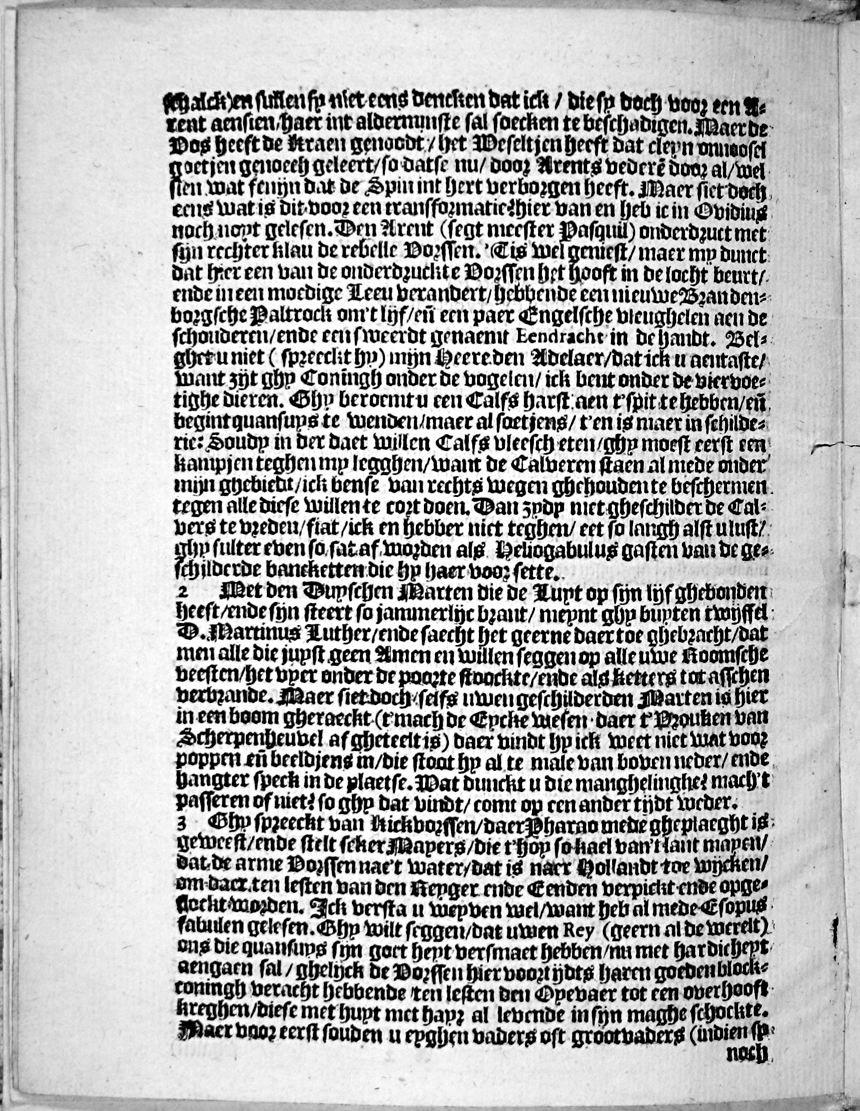 schalck) en sullen sy niet eens dencken dat ick / die sy doch voor een A-
rent aensien / haer int alderminste sal soecken te beschadigen. Maer de
Vos heeft de Kraen genoodt / het Weseltjen heeft dat cleyn onnoosel
goetjen genoech geleert / so datse nu / door Arents vederē door al / wel
sien wat fenijn dat de Spin int hert verborgen heeft. Maer siet doch
eens wat is dit voor een transformatie? hier van en heb ic in Ovidius
noch noyt gelesen. Den Arent (segt meester Pasquil) onderdruct met
sijn rechter klau de rebelle Vorssen. 'Tis wel geniest / maer my dunct
dat hier een van de onderdruckte Vorssen het hooft in de locht beurt /
ende in een moedige Leeu verandert / hebbende een nieuwe Branden-
borgsche Paltrock om't lijf / eñ een paer Engelsche vleughelen aen de
schouderen / ende een sweerdt genaemt Eendracht in de handt. Bel-
ghet u niet ( spreeckt hy) mijn Heere den Adelaer / dat ick u aentaste /
want zijt ghy Coningh onder de vogelen / ick bent onder de viervoe-
tighe dieren. Ghy beroemt u een Calfs harst aen t'spit te hebben / eñ
begint quansuys te wenden / maer al soetjens / t'en is maer in schilde-
rie: Soudy in der daet willen Calfs vleesch eten / ghy moest eerst een
kampjen teghen my legghen / want de Calveren staen al mede onder
mijn ghebiedt / ick bense van rechts wegen ghehouden te beschermen
tegen alle diese willen te cort doen. Dan zydy niet gheschilder de Cal-
vers te vreden / fiat / ick en hebber niet teghen / eet so langh alst u lust /
ghy sulter even so sat af worden als Heliogabulus gasten van de ge-
schilderde bancketten die hy haer voor sette.
2 Met den Duyschen Marten die de Luyt op sijn lijf ghebonden
heeft / ende sijn steert so jammerlijc brant / meynt ghy buyten twijffel
D. Martinus Luther / ende saecht het geerne daer toe ghebracht / dat
men alle die juyst geen Amen en willen seggen op alle uwe Roomsche
veesten / het vyer onder de poorte stoockte / ende als ketters tot asschen
verbrande. Maer siet doch / selfs uwen geschilderden Marten is hier
in een boom gheraeckt (t'mach de Eycke wesen daer t'Vrouken van
Scherpenheuvel af gheteelt is) daer vindt hy ick weet niet wat voor
poppen eñ beeldjens in / die stoot hy al te male van boven neder / ende
hangter speck in de plaetse. Wat dunckt u die manghelinghe? mach't
passeren of niet? so ghy dat vindt / comt op een ander tijdt weder.
3 Ghy spreeckt van Kickvorssen / daer Pharao mede gheplaeght is
geweest / ende stelt seker Mayers / die t'hoy so kael van't lant mayen /
dat de arme Vorssen nae't water / dat is naer Hollandt toe wijcken /
om daer ten lesten van den Reyger ende Eenden verpickt ende opge-
slockt worden. Ick versta u weyven wel / want heb al mede Esopus
fabulen gelesen. Ghy wilt seggen / dat uwen Rey (geern al de werelt)
ons die quansuys sijn goet heyt versmaet hebben / nu met hardicheyt
aengaen sal / ghelijck de Vorssen hier voortijdts haren goeden block-
coningh veracht hebbende ten lesten den Oyevaer tot een overhooft
kreghen / diese met huyt met hayr al levende in sijn maghe schockte.
Maer voor eerst souden u eyghen vaders oft grootvaders (indien sy
noch